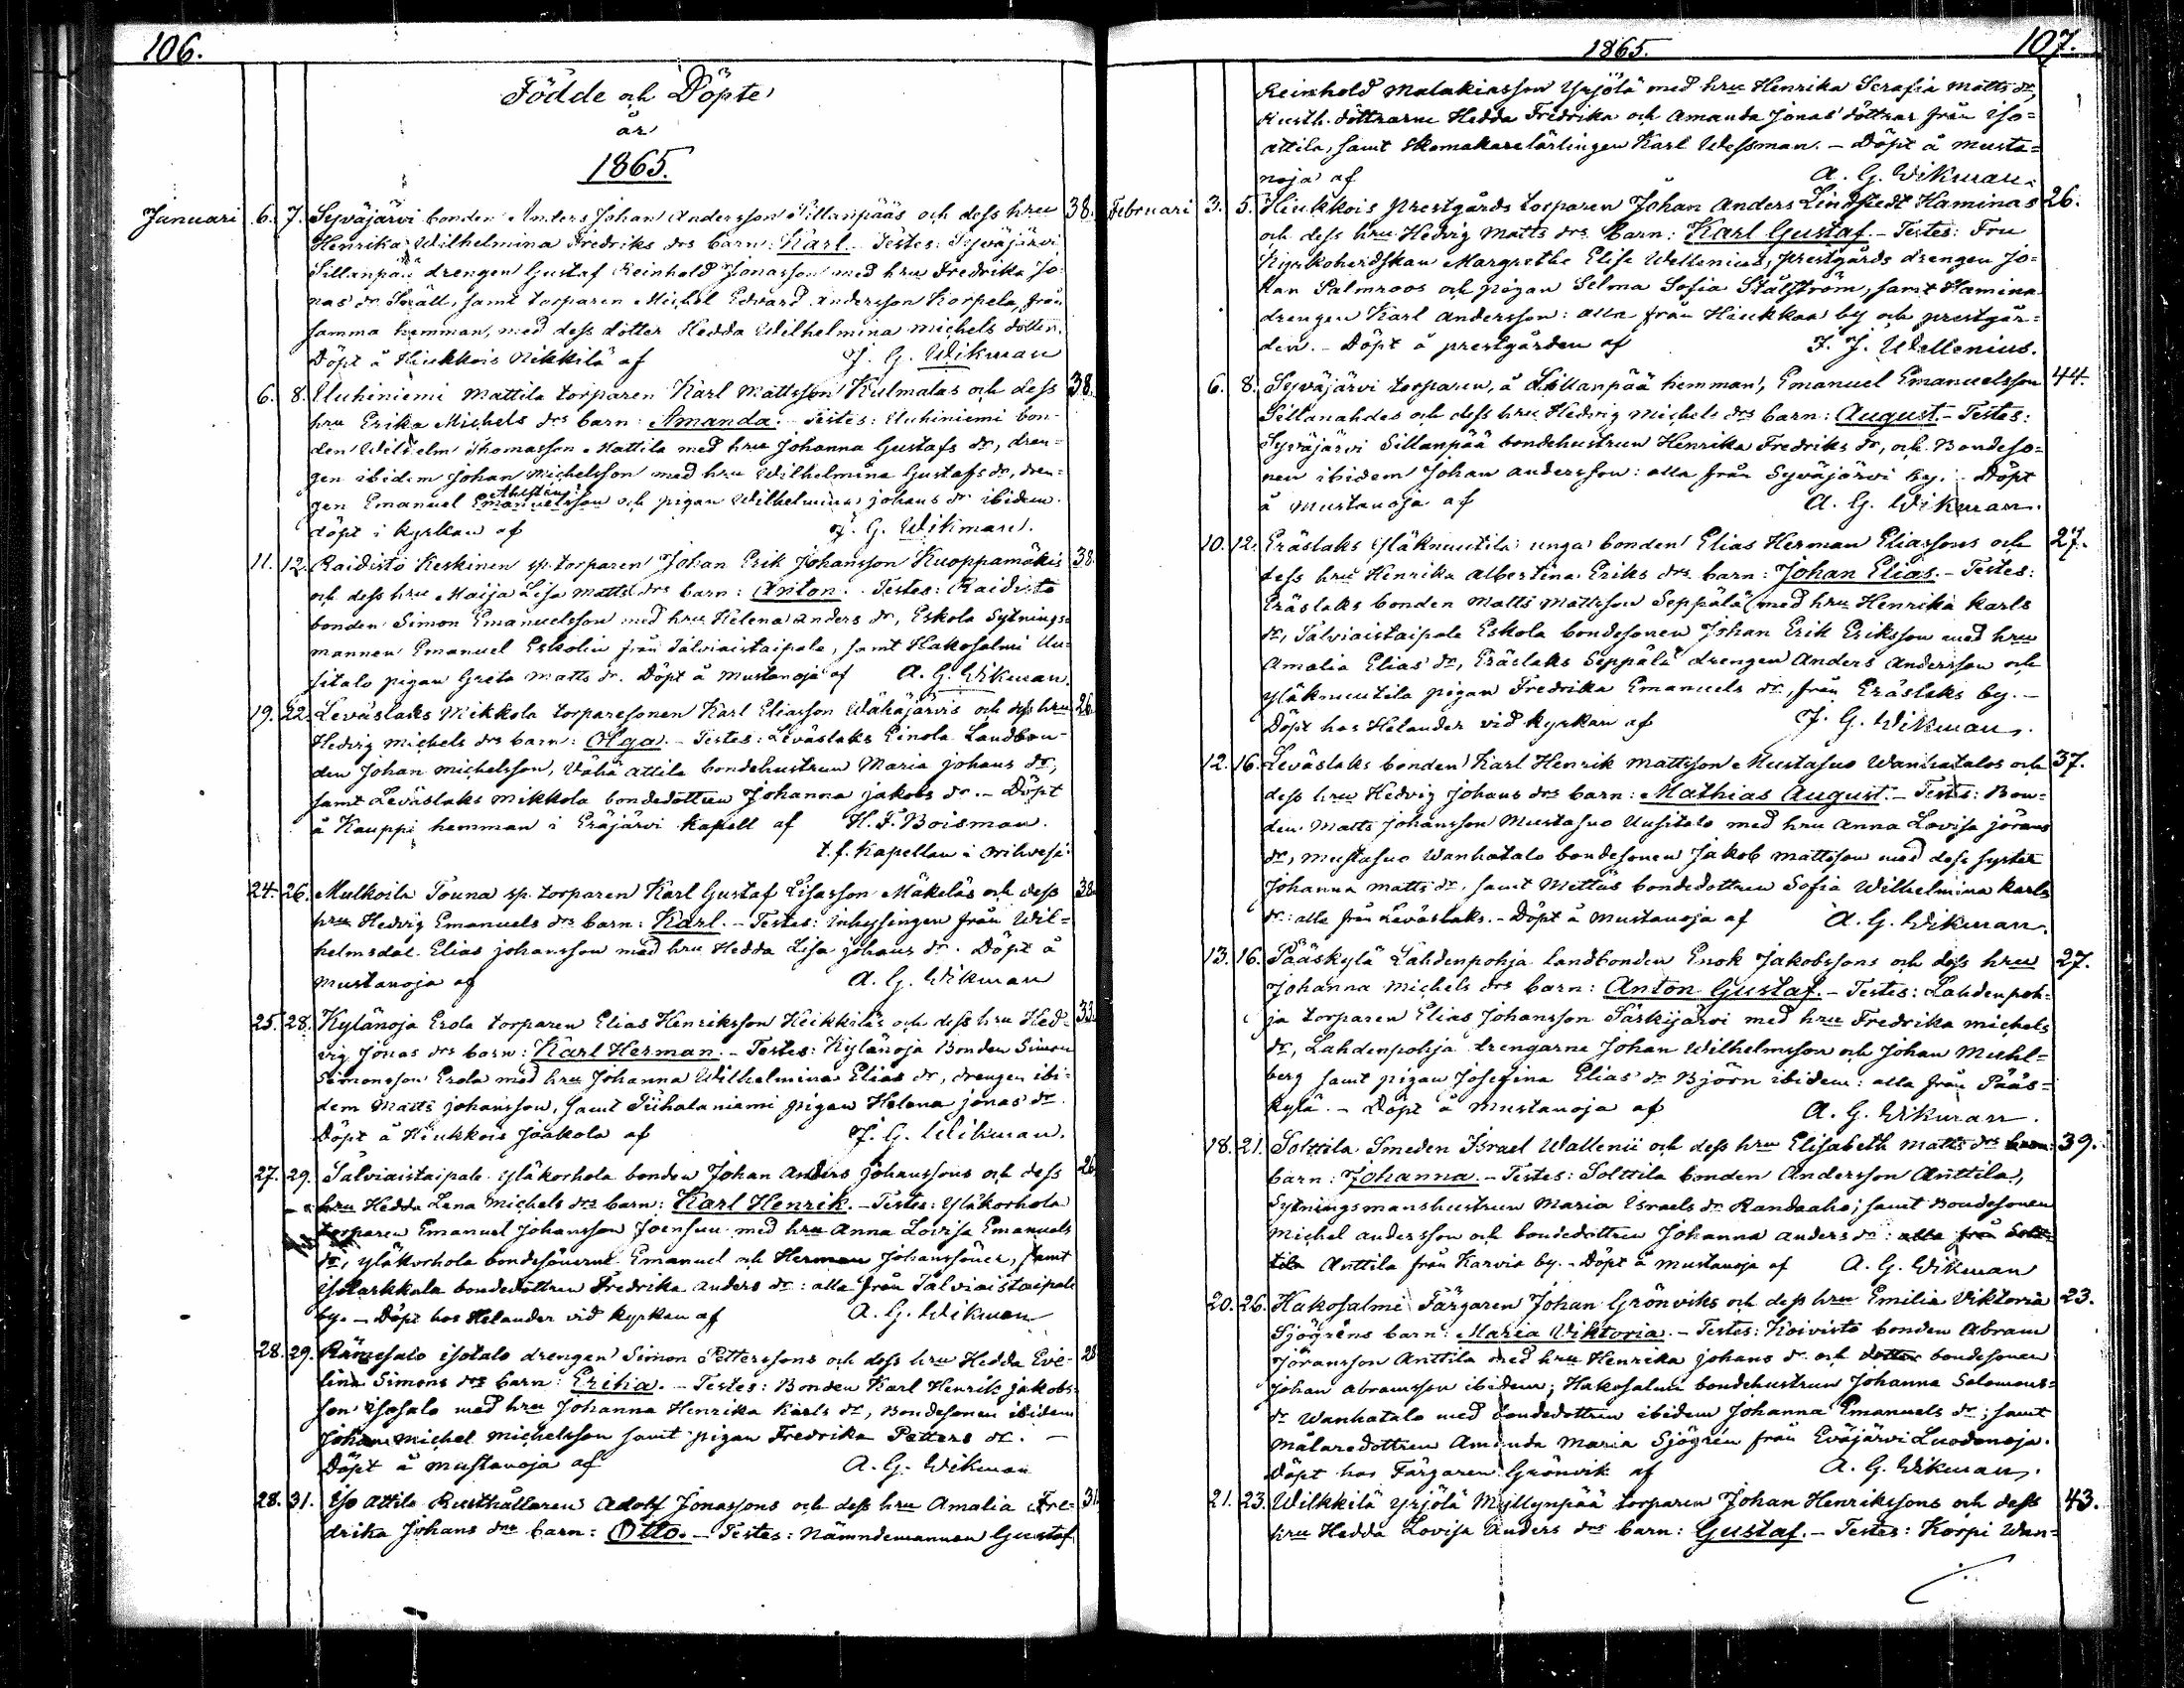 106.
Födde och Döpte
år
1865.
Januari 6. 7. Syväjärvi bonden Anders Johan Andersson Sillanpääs och dess hru 38.
Henrika Wilhelmina Fredriks drs barn: Karl. Testes: Syväjärvi
Sillanpää drengen Gustaf Reinhold Jonasson med hru Fredrika Jo-
nas dr samt torparen Michel Edvard Andersson Korpela, från
samma hemman, med dess dotter Hedda Wilhelmina Michels dotter.
Döpt å Hiukkois Nikkilä af J. G. Wikman
6. 8. Uuhiniemi Mattila torparen Karl Mattsson Kulmalas och dess 38.
hru Erika Michels drs barn: Amanda. Testes: Uuhiniemi bon-
den Wilhelm Thomasson Mattila med hru Johanna Gustafs dr, dren-
gen ibidem Johan Michelsson med hru Wilhelmina Gustafs dr, dren-
gen Emanuel Emanuelsson och pigan Wilhelmina Johans dr ibidem.
döpt i kyrkan af J. G. Wikman.
11. 12. Raidisto Keskinen sp. torparen Johan Erik Johansson Kuoppamäkis 38.
och dess hru Maija Lisa Matts drs barn: Anton. Testes: Raidisto
bonden Simon Emanuelsson med hru Helena Anders dr, Eskola Sytnings-
mannen Emanuel Eskolin från Talviaistaipale, samt Hakosalmi Uu-
sitalo pigan Greta Matts dr. Döpt å Mustanoja af A. G. Wikman.
19. 22. Leväslaks Mikkola torparesonen Karl Eliasson Wähäjärvis och dess hru 26.
Hedvig Michels drs barn: Olga. - Testes: Leväslaks Einola Landbon-
den Johan Michelsson, Vähä attila bondehustrun Maria Johans dr,
samt Leväslaks Mikkola bondedottren Johanna Jakobs dr. - Döpt
å Kauppi hemman i Eräjärvi kapell af H. F. Boisman.
t. f. Kapellan i Orihvesi.
24. 26. Mulkoila Touna sp. torparen Karl Gustaf Lisasson Mäkeläs och dess 38.
hru Hedvig Emanuels drs barn: Karl. - Testes: Inhysingen från Wil-
helmsdal Elias Johansson med hru Hedda Lisa Johans dr. Döpt å
Mustanoja af A. G. Wikman
25. 28. Kylänoja Erola torparen Elias Henriksson Heikkiläs och dess hru Hed- 33.
vig Jonas drs barn: Karl Herman. - Testes: Kylänoja Bonden Simon
Simonsson Erola med hru Johanna Wilhelmina Elias dr, drengen ibi-
dem Matts Johansson, samt Tiihalaniemi pigan Helena Jonas dr.
Döpt å Hiukkois Jaakola af J. G. Wikman.
27. 29. Talviaistaipale Yläkorhola bonden Johan Anders Johanssons och dess 26.
hru Hedda Lena Michels drs barn: Karl Henrik. - Testes: Yläkorhola
torparen Emanuel Johansson Joensuu med hru Anna Lovisa Emanuels
dr, Yläkorhola bondesönerne Emanuel och Herman Johanssöner, samt
bondedottren Fredrika Anders dr: alla från Talviaistaipale
by. - Döpt hos Helander vid kyrkan af A. G. Wikman
28. 29. Isotalo drengen Simon Petterssons och dess hru Hedda Eve- 28
lina Simons drs barn: Erika. - Testes: Bonden Karl Henrik Jakobs-
son Isotalo med hru Johanna Henrika Karls dr, Bondesonen ibidem
Johan Michel Michelsson samt pigan Fredrika Petters dr. -
Döpt å Mustanoja af A. G. Wikman
28. 31. Iso attila Rusthållaren Adolf Jonassons och dess hru Amalia Fre- 31
drika Johans drs barn: Otto. - Testes: Nämndemannen Gustaf
1865. 107.
Reinhold Malakiasson Yrjölä med hru Henrika Serafia Matts dr,
Rusth. döttrarne Hedda Fredrika och Amanda Jonas döttrar från Iso-
attila, samt skomakarelärlingen Karl Wessman. - Döpt å Musta-
noja af A. G. Wikman.
Februari 3. 5. Hiukkois prestgårds torparen Johan Anders Lindstedt Haminas 26.
och dess hru Hedvig Matts drs barn: Karl Gustaf. - Testes: Fru
Kyrkoherdskan Margretha Elise Wellenius, prestgårds drengen Jo-
han Palmroos och pigan Selma Sofia Stålström, samt Hamina
drengen Karl Andersson: alla från Hiukkaa by och prestgår-
den. - Döpt å prestgården af F. J. Wellenius.
6. 8. Syväjärvi torparen, å Sillanpää hemman, Emanuel Emanuelsson 44.
Sillanahdes och dess hru Hedvig Michels drs barn: August. - Testes:
Syväjärvi Sillanpää bondehustrun Henrika Fredriks dr, och Bondeso-
nen ibidem Johan Andersson: alla från Syväjärvi by. Döpt
å Mustanoja af A. G. Wikman.
10. 12. Eräslaks Yläknuutila unga bonden Elias Herman Eliassons och 27.
dess hru Henrika Albertina Eriks drs barn: Johan Elias. - Testes:
Eräslaks bonden Matts Mattsson Seppälä med hru Henrika Karls
dr, Talviaistaipale Eskola bondesonen Johan Erik Eriksson med hru
Amalia Elias dr, Eräslaks Seppälä drengen Anders Andersson och
Yläknuutila pigan Fredrika Emanuels dr, från Eräslaks by. -
Döpt hos Helander vid kyrkan af J. G. Wikman.
12. 16. Leväslaks bonden Karl Henrik Mattsson Mustasuo Wanhatalos och 37.
dess hru Hedvig Johans drs barn: Mathias August. - Testes: Bon-
den Matts Johansson Mustasuo Uusitalo med hru Anna Lovisa Jörans
dr, Mustasuo Wanhatalo bondesonen Jakob Mattsson med dess syster
Johanna Matts dr, samt bondedottren Sofia Wilhelmina Karls
dr: alla från Leväslaks. - Döpt å Mustanoja af A. G. Wikman.
13. 16. Pääskylä Lahdenpohja landbonden Enok Jakobssons och dess hru 27.
Johanna Michels drs barn: Anton Gustaf. - Testes: Lahdenpoh-
ja torparen Elias Johansson Särkijärvi med hru Fredrika Michels
dr, Lahdenpohja drengarne Johan Wilhelmsson och Johan
berg samt pigan Josefina Elias dr Björn ibidem: alla från Pääs-
kylä. - Döpt å Mustanoja af A. G. Wikman.
18. 21. Solttila Smeden Israel Wallenii och dess hru Elisabeth Matts drs barn: 39.
barn: Johanna. - Testes: Solttila bonden Andersson Anttila,
Sytningsmanshustrun Maria Israels dr Randaaho; samt Bondesonen
Michel Andersson och bondedottren Johanna Anders dr: alla från Solt-
tila Anttila från Karvia by. - Döpt å Mustanoja af A. G. Wikman
20. 26. Hakosalmi Färgaren Johan Grönviks och dess hru Emilia Viktoria 23.
Sjögrens barn: Maria Viktoria. - Testes: Koivisto bonden Abram
Jöransson Anttila med hru Henrika Johans dr och dotter bondesonen
Johan Abramsson ibidem; Hakosalmi bondehustrun Johanna Salomons-
dr Wanhatalo med bondedottren ibidem Johanna Emanuels dr; samt
Målaredottren Amanda Maria Sjögren från Eräjärvi Luodonoja.
Döpt hos Färgaren Grönvik af A. G. Wikman.
21. 23. Wilkkilä Yrjölä Myllynpää torparen Johan Henrikssons och dess 43.
hru Hedda Lovisa Anders drs barn: Gustaf. - Testes: Korpi Wan-